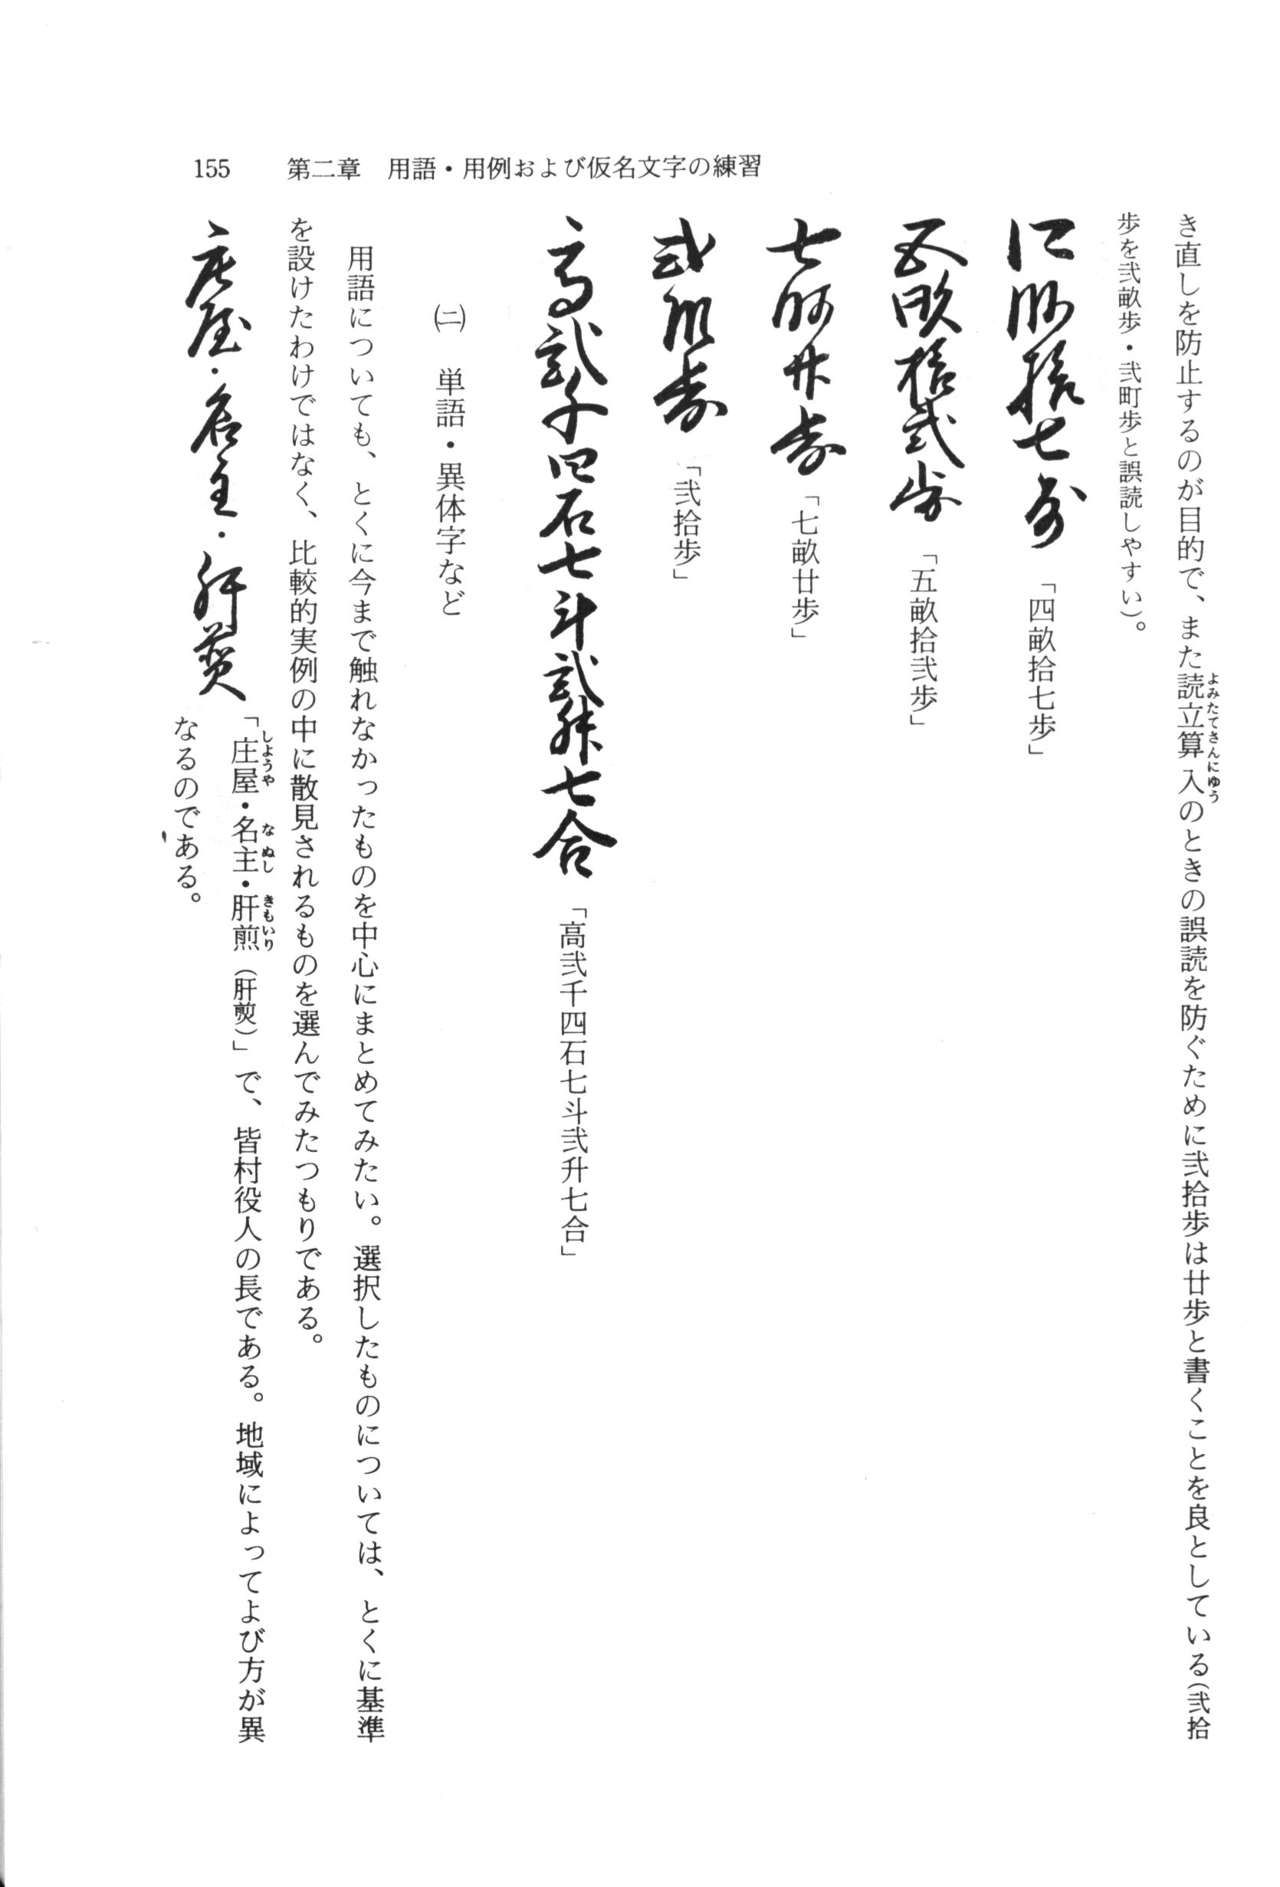 155　第二章　用語・用例および仮名文字の練習
き直しを防止するのが目的で、また読立算入のときの誤読を防ぐために弐拾歩は廿歩と書くことを良としている(弐拾
よみたてさんにゆう
歩を弐畝歩・弐町歩と誤読しやすい)。
四畝拾七歩「四畝拾七歩」
五畝拾弐歩「五畝拾弐歩」
七畝廿歩「七畝廿歩」
弐拾歩「弐拾歩」
高弐千四石七斗弐升七合「高弐千四石七斗弐升七合」
㈡　単語・異体字など
用語についても、とくに今まで触れなかったものを中心にまとめてみたい。選択したものについては、とくに基準
を設けたわけではなく、比較的実例の中に散見されるものを選んでみたつもりである。
庄屋・名主・肝煎「庄屋・名主・肝煎(肝煑)」で、皆村役人の長である。地域によってよび方が異
しようや　なぬし　きもいり
なるのである。